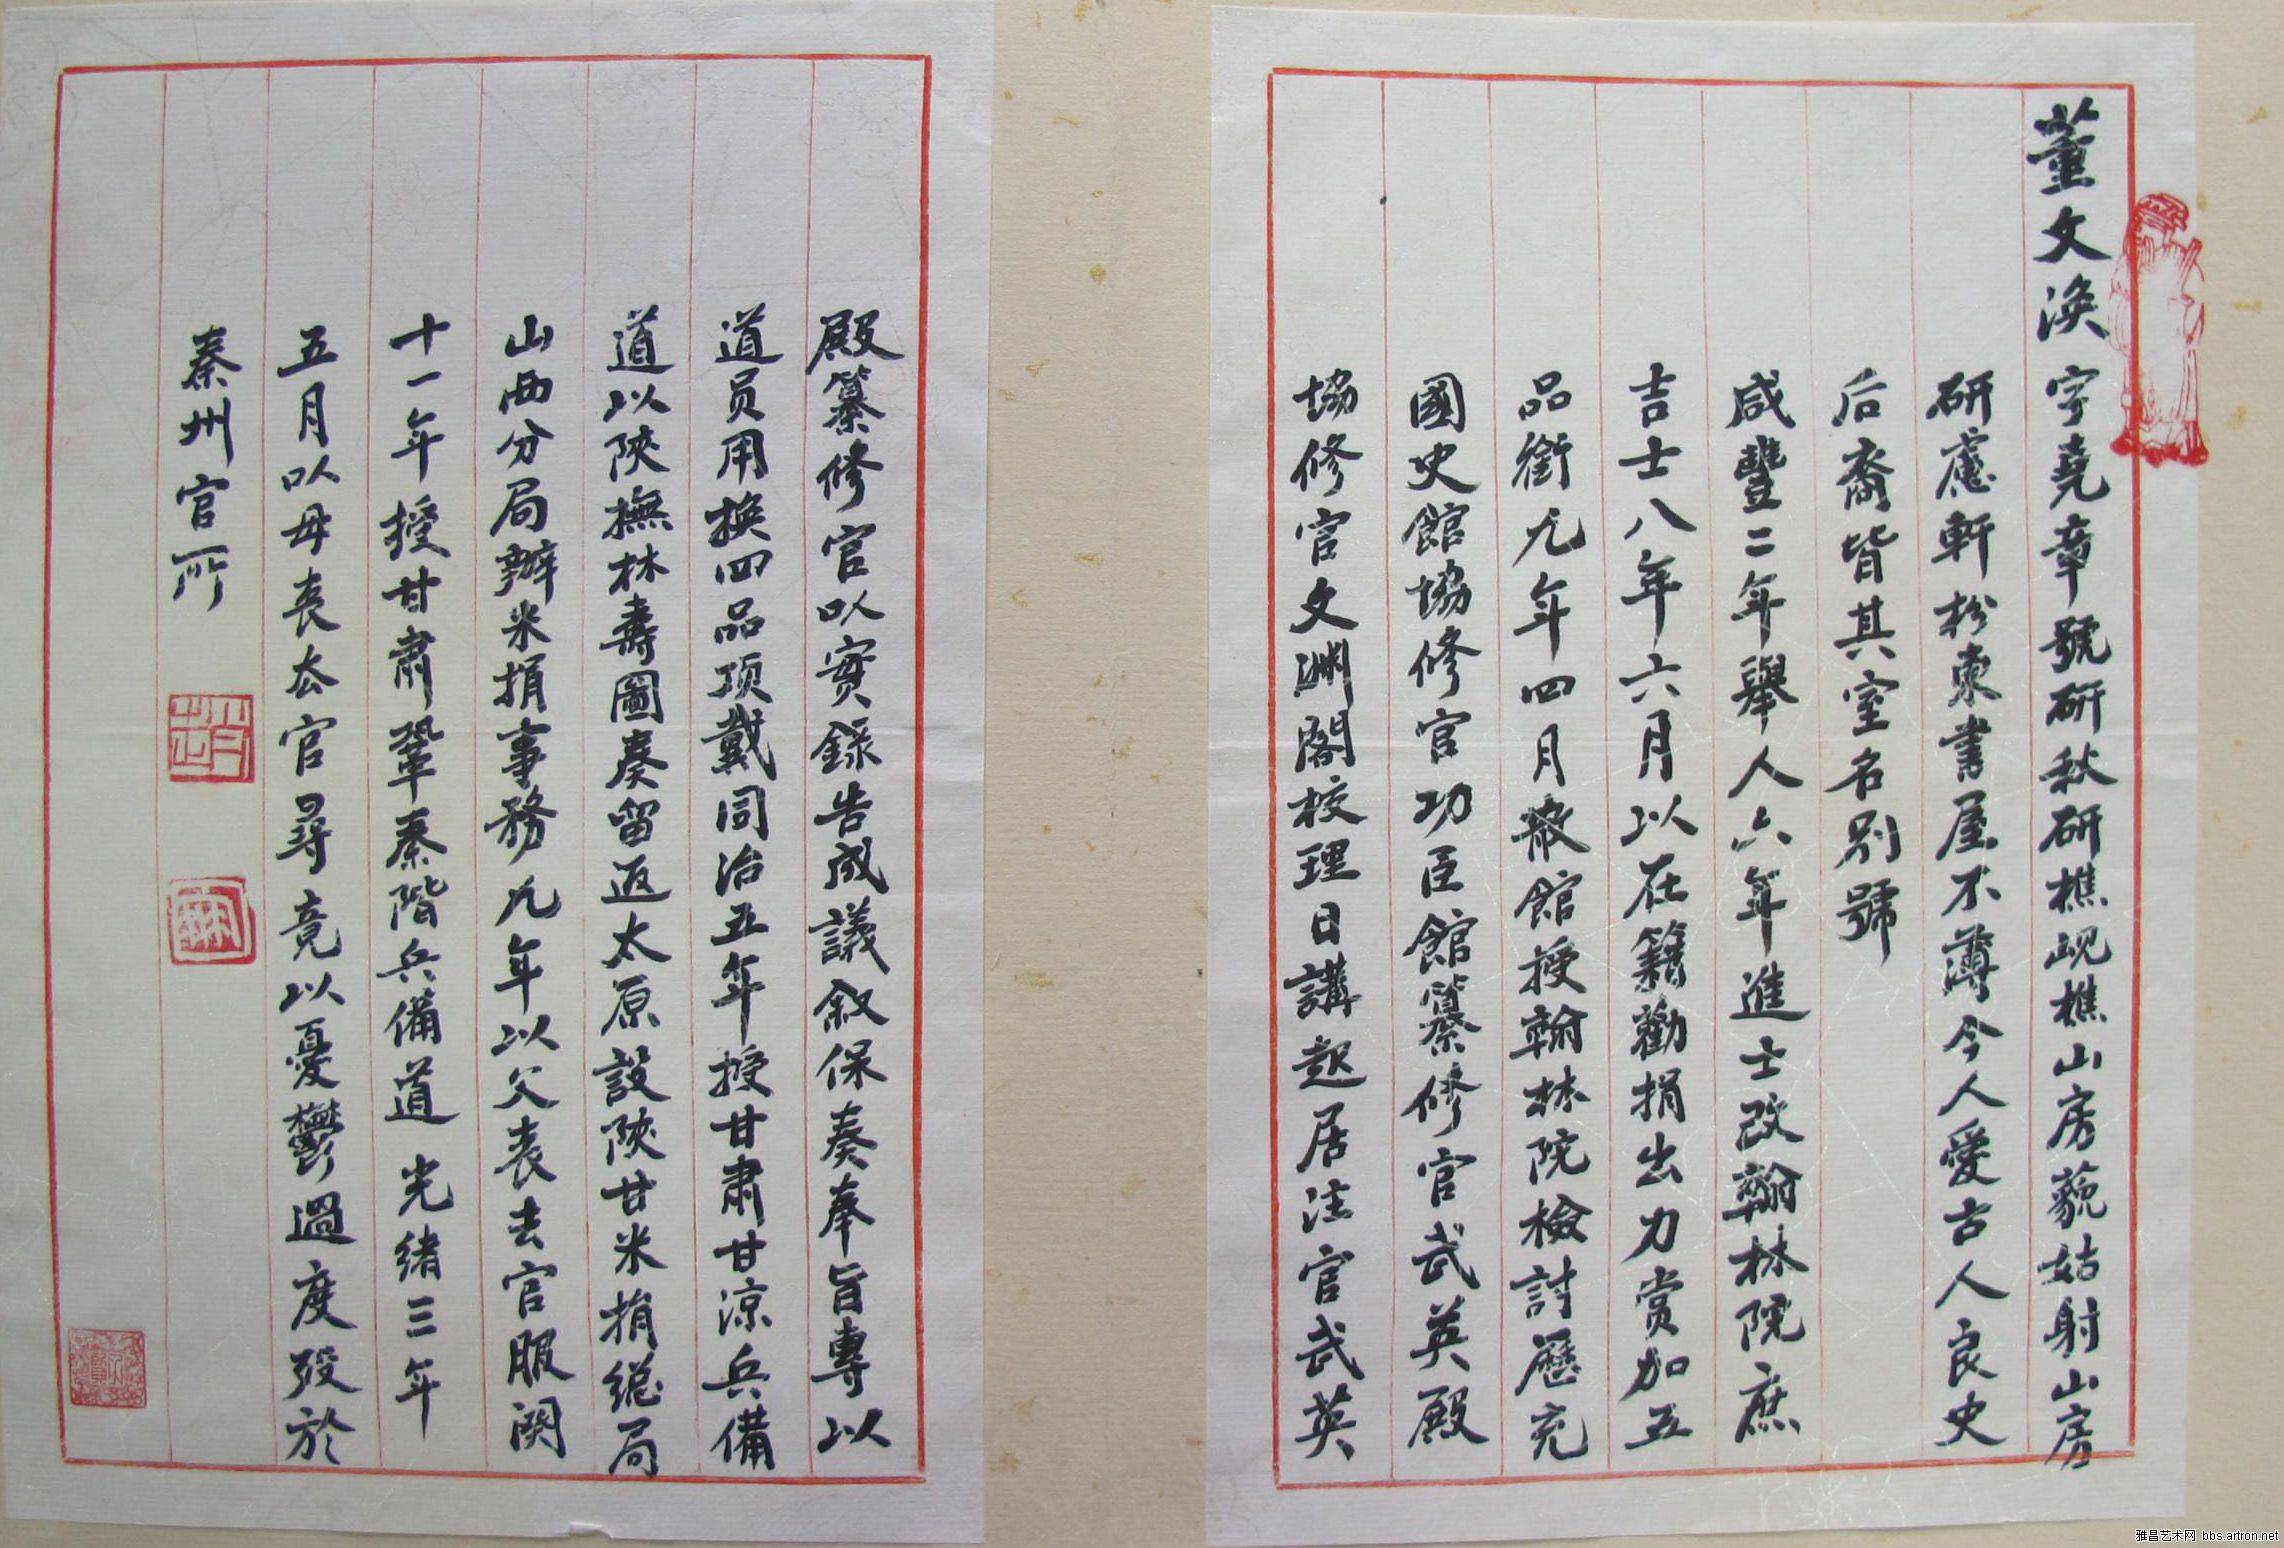 董文渙字堯章號硏秋研樵峴樵山房藐姑射山房
研慮軒松東書屋不薄今人愛古人良史
后裔皆其室名別號
咸豐二年舉人六年進士改翰林院庶
吉士八年六月以在籍勸捐出力賞加五
品銜九年四月散館授翰林院檢討歷充
國史館協修官功臣館纂修官武英殿
協修官文淵閣校理日講起居注官武英
殿纂修官以實錄告成議敘保奏奉旨專以
道员用換四品顶戴同治五年授甘肅甘涼兵備
道以陝撫林壽圖奏留返太原設陝甘米捐總局
山西分局辦米捐事務九年以父喪去官服闋
十一年授甘肅鞏秦階兵備道 光緒三年
五月以母喪去官尋竟以憂鬱過度歿於
秦州官所
雅昌艺术网 bbs.artron.net